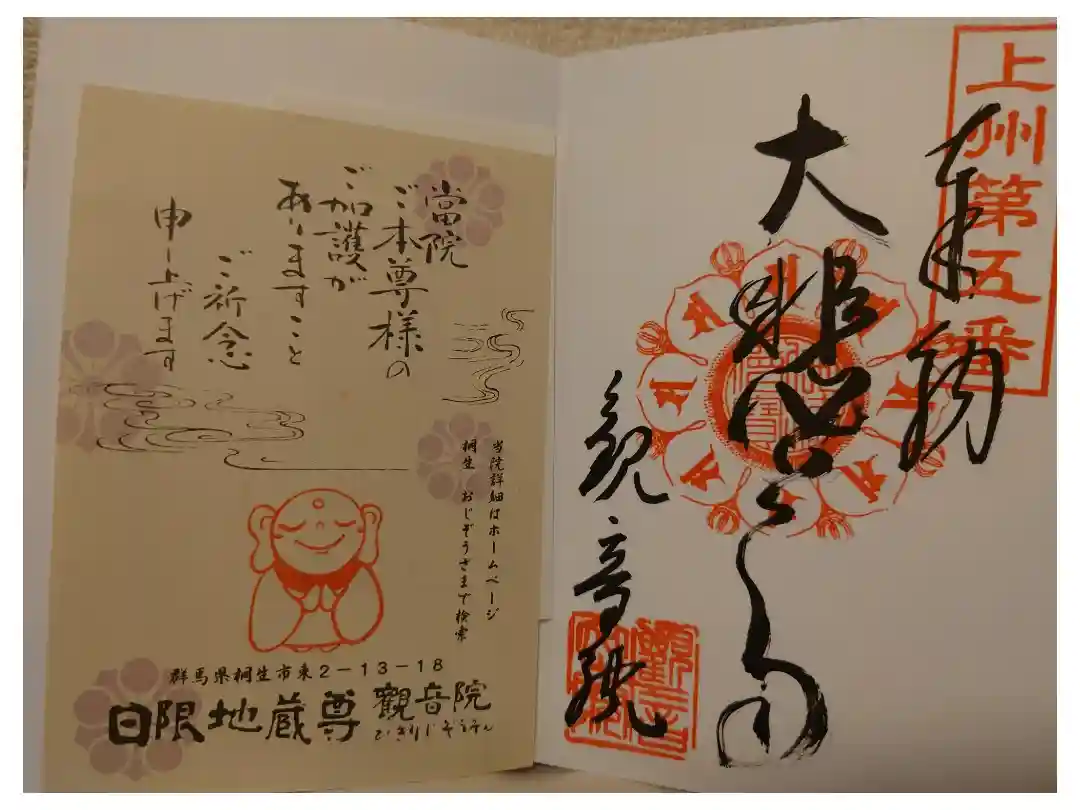 上州第五番
奉拝
大悲閣
観音院
當院
ご本尊様の
ご加護が
ありますこと
ご祈念
申し上げます
当院詳細はホームページ
桐生 おじぞうさまで検索
群馬県桐生市東2-13-18
日限地蔵尊 観音院
ひぎりじぞうそん